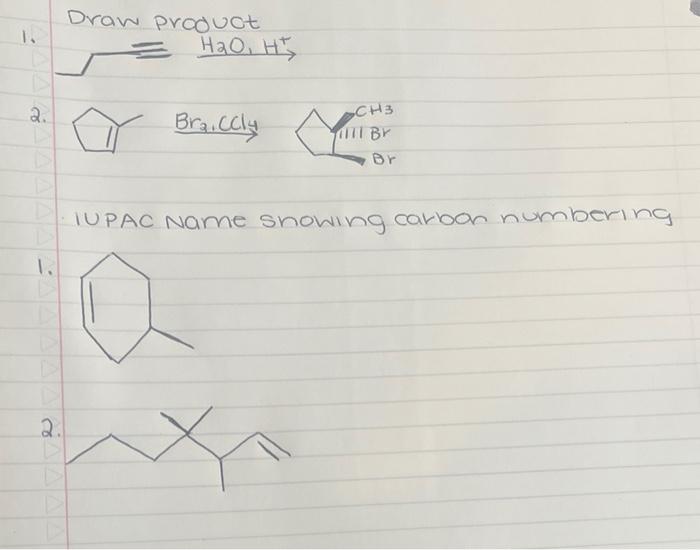 Draw product
1. H2O, H+
2. Br2, CCl4 CH3
Br
Br
IUPAC Name showing carbon numbering
1.
2.